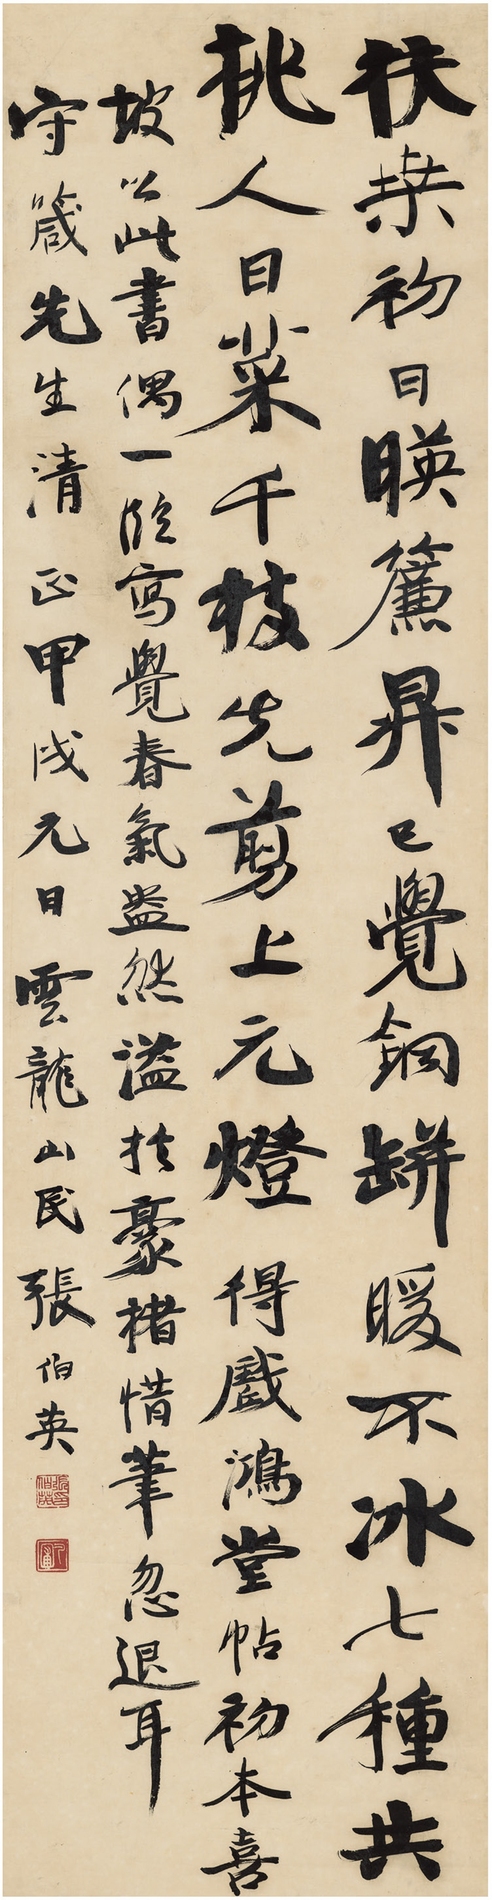 扶桒初日暎簾昇已覺銅缾暖不冰七種共
挑人日菜千枝先剪上元燈 得戲鴻堂帖初本喜
坡公此書偶一臨寫覺春氣盎然溢扵豪楮惜筆忽退耳
守箴先生清正甲戌元日雲龍山民張伯英